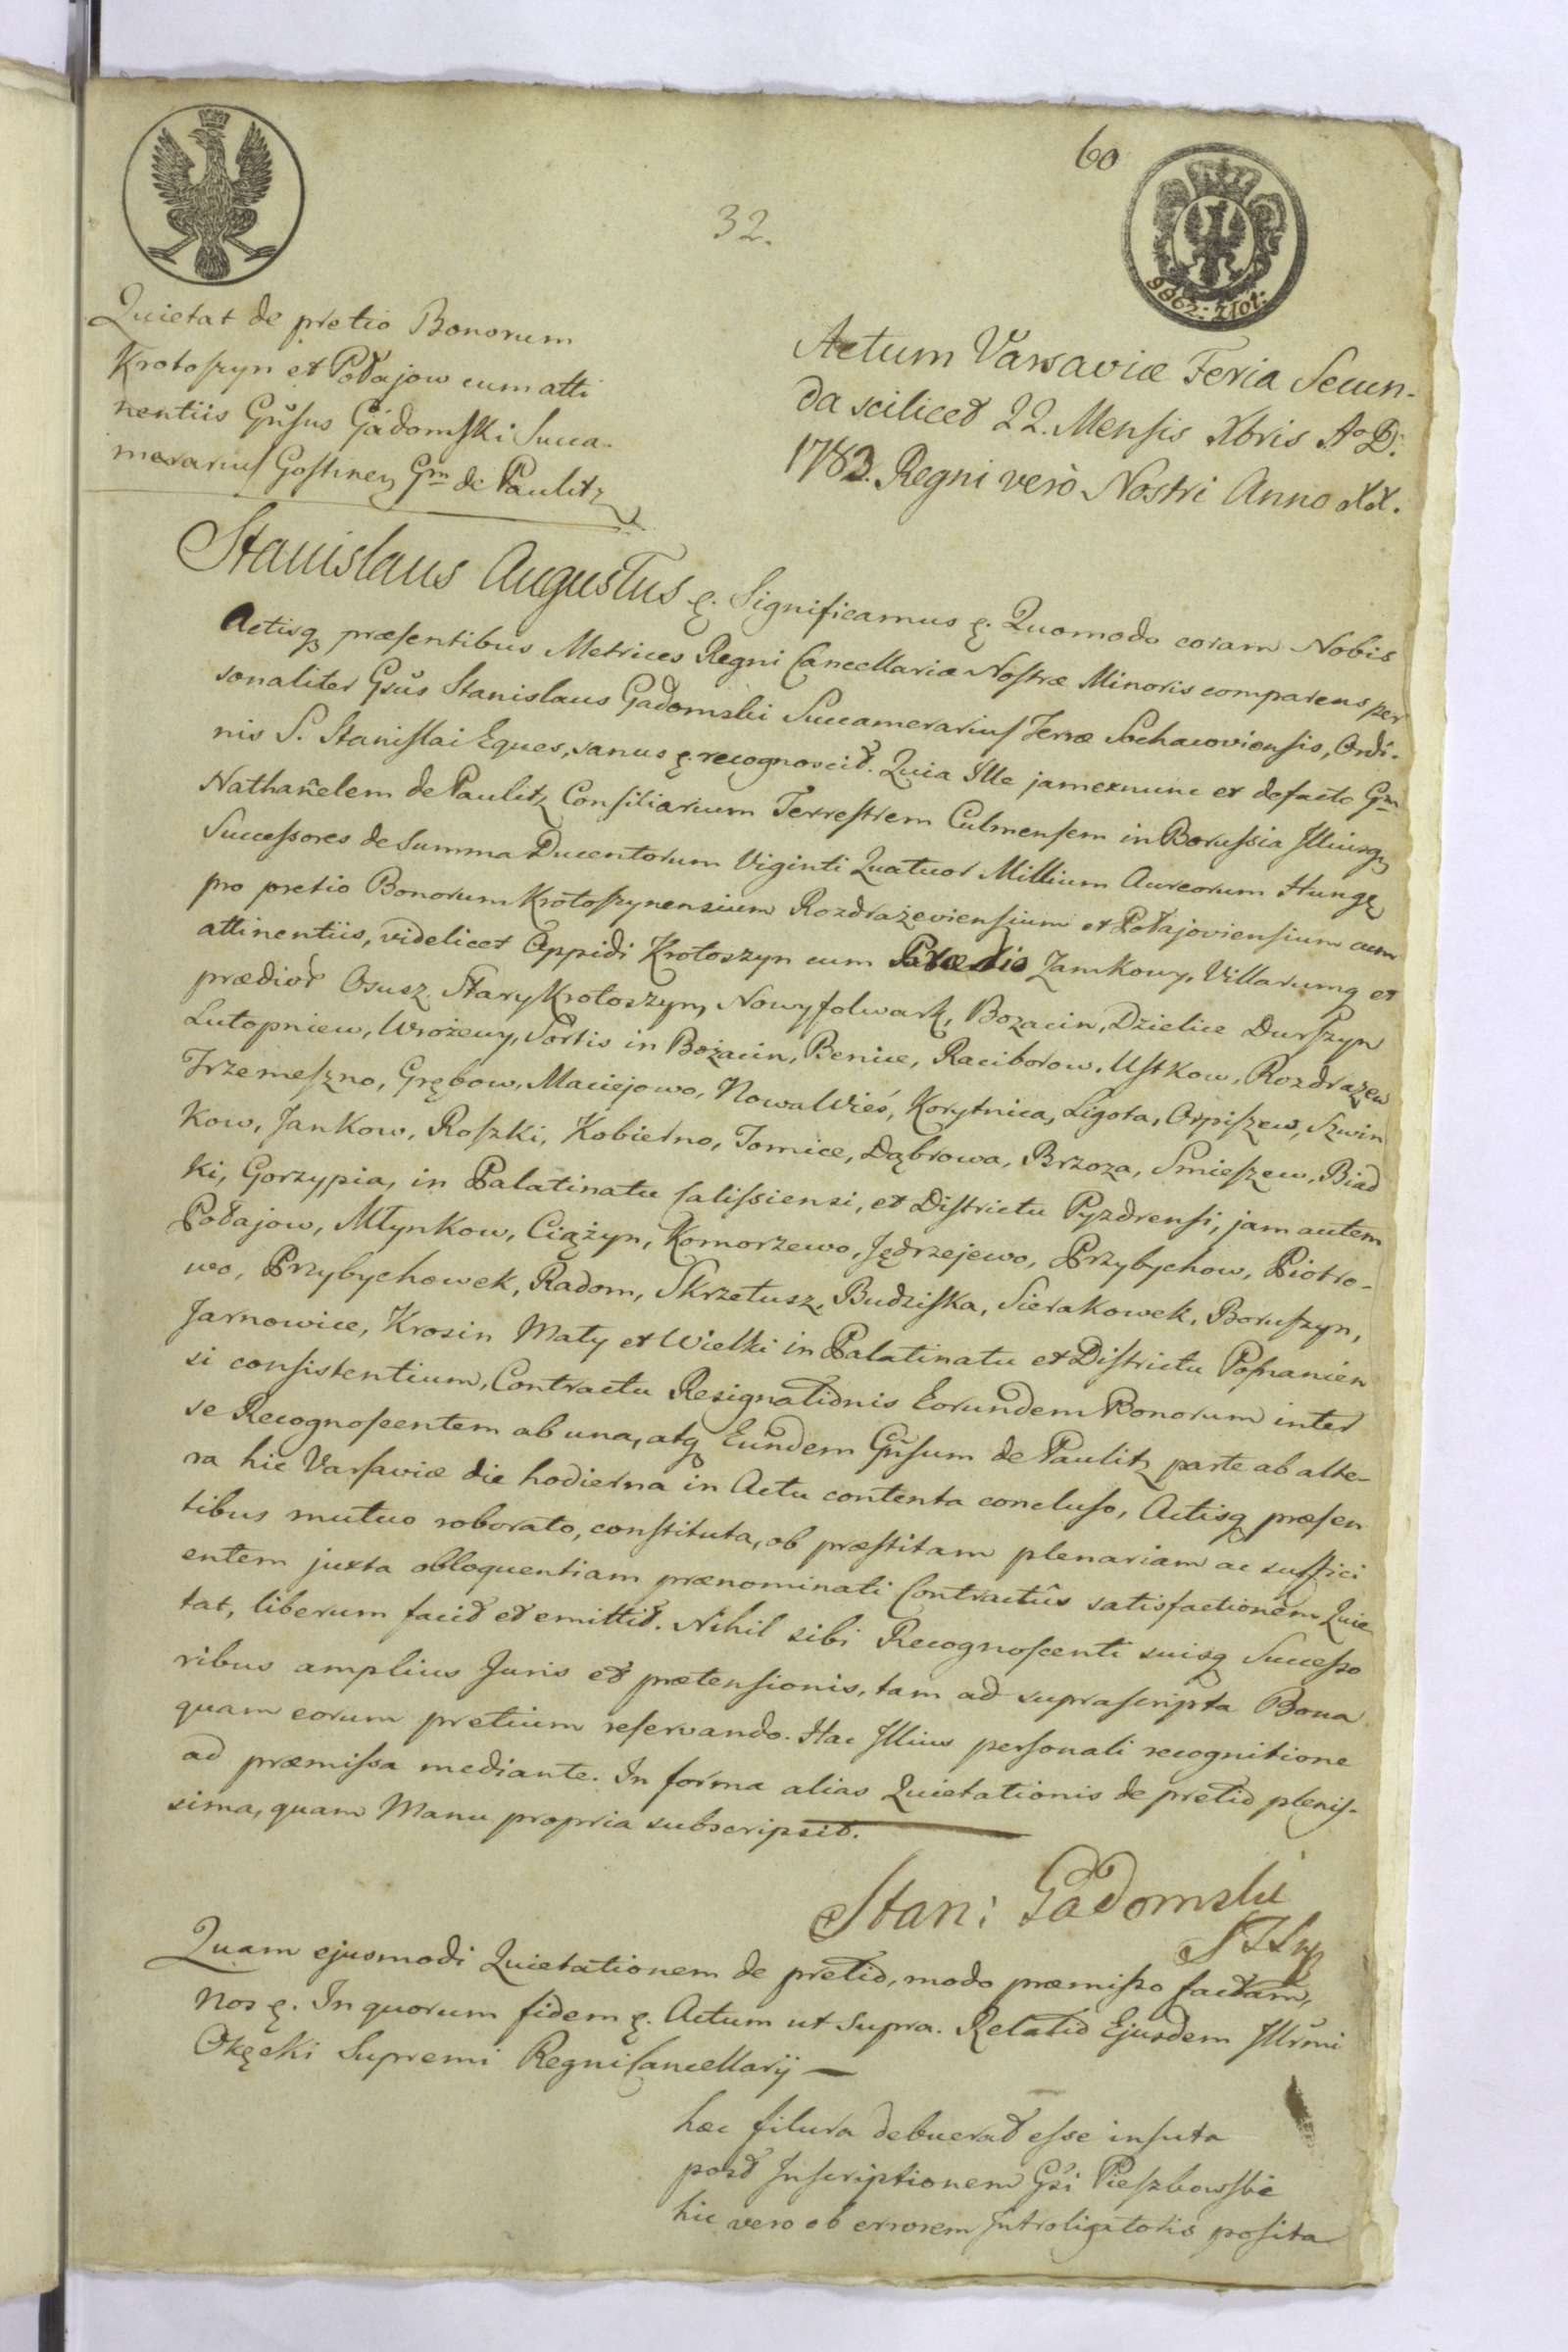 60
32.
9962: Zlot:
Quietat de pretio Bonorum
Krotoszyn et Połajow cum atti
nentiis Gnũsus Gadomski Succa-
merarius Gostinen Gm de Paulitz
Actum Varsaviæ Feria Secun-
da scilicet 22. Mensis Xbris Ao D:
1783. Regni verò Nostri Anno XX.
Stanislaus Augustus &. Significamus &. Quomodo coram Nobis
Actisq præsentibus Metrices Regni Cancellariæ Nostræ Minoris comparens per
sonaliter Gsũs Stanislaus Gadomski Succamerarius Terræ Sochacoviensis, Ordi-
nis S. Stanislai Eques, sanus &. recognoscit. Quia Ille jamexnunc et defacto Gm
Nathanẽlem de Paulitz Consiliarium Terrestrem Culmensem in Borussia Illiusq
Successores de Summa Ducentorum Viginti Quatuor Millium Aureorum Hung
pro pretio Bonorum Krotoszynensium Rozdrażeviensium et Połajoviensium cum
attinentiis, videlicet Oppidi Krotoszyn cum Prædio Zamkowy, Villarumq et
prædior Osusz. Stary Krotoszyn, Nowyfolwark, Bozacin, Dzielice Durszyn
Lutopniew, Wrożewy, Sortis in Bożacin, Benice, Raciborow, Ustkow, Rozdrażew
Trzemeszno, Grębow, Maciejowo, Nowa Wieś, Korytnica, Ligota, Orpiszew, Szwin
kow, Jankow, Roszki, Kobierno, Tomice, Dąbrowa, Brzoza, Smieszew, Biad
ki, Gorzypia, in Palatinatu Calissiensi, et Districtu Pyzdrensi, jam autem
Połajow, Młynkow, Ciążyn, Komorzewo, Jędrzejewo, Przybychow, Piotro-
wo, Przybychowek, Radom, Skrzetusz, Budziska, Sierakowek, Boruszyn,
Jarnowice, Krosin Mały et Wielki in Palatinatu et Districtu Posnanien
si consistentium, Contractu Resignationis Eorundem Bonorum inter
se Recognoscentem ab una, atq Eundem Gnũsum de Paulitz parte ab alte-
ra hic Varsaviæ die hodierna in Actu contenta concluso, Actisq præsen
tibus mutuo roborato, constituta, ob præstitam plenariam ac suffici
entem juxta obloquentiam prænominati Contractûs satisfactionem Quie
tat, liberum facit et emittit. Nihil sibi Recognoscenti suisq Successo
ribus amplius Juris et prætensionis, tam ad suprascripta Bona
quam eorum pretium reservando. Hac Illius personali recognitione
ad præmissa mediante. In forma alias Quietationis de pretio plenis-
sima, quam Manu propria subscripsit.
Stan: Gadomski
Quam ejusmodi Quietationem de pretio, modo præmisso factam,
Nos &. In quorum fidem &. Actum ut supra. Relatio Ejusdem Illr̃mi
Okęcki Supremi Regni Cancellarij —
hæc filura debuerat esse insuta
post Inscriptionem Gsi Pieszkowski
hic vero ob errorem Introligatoris posita